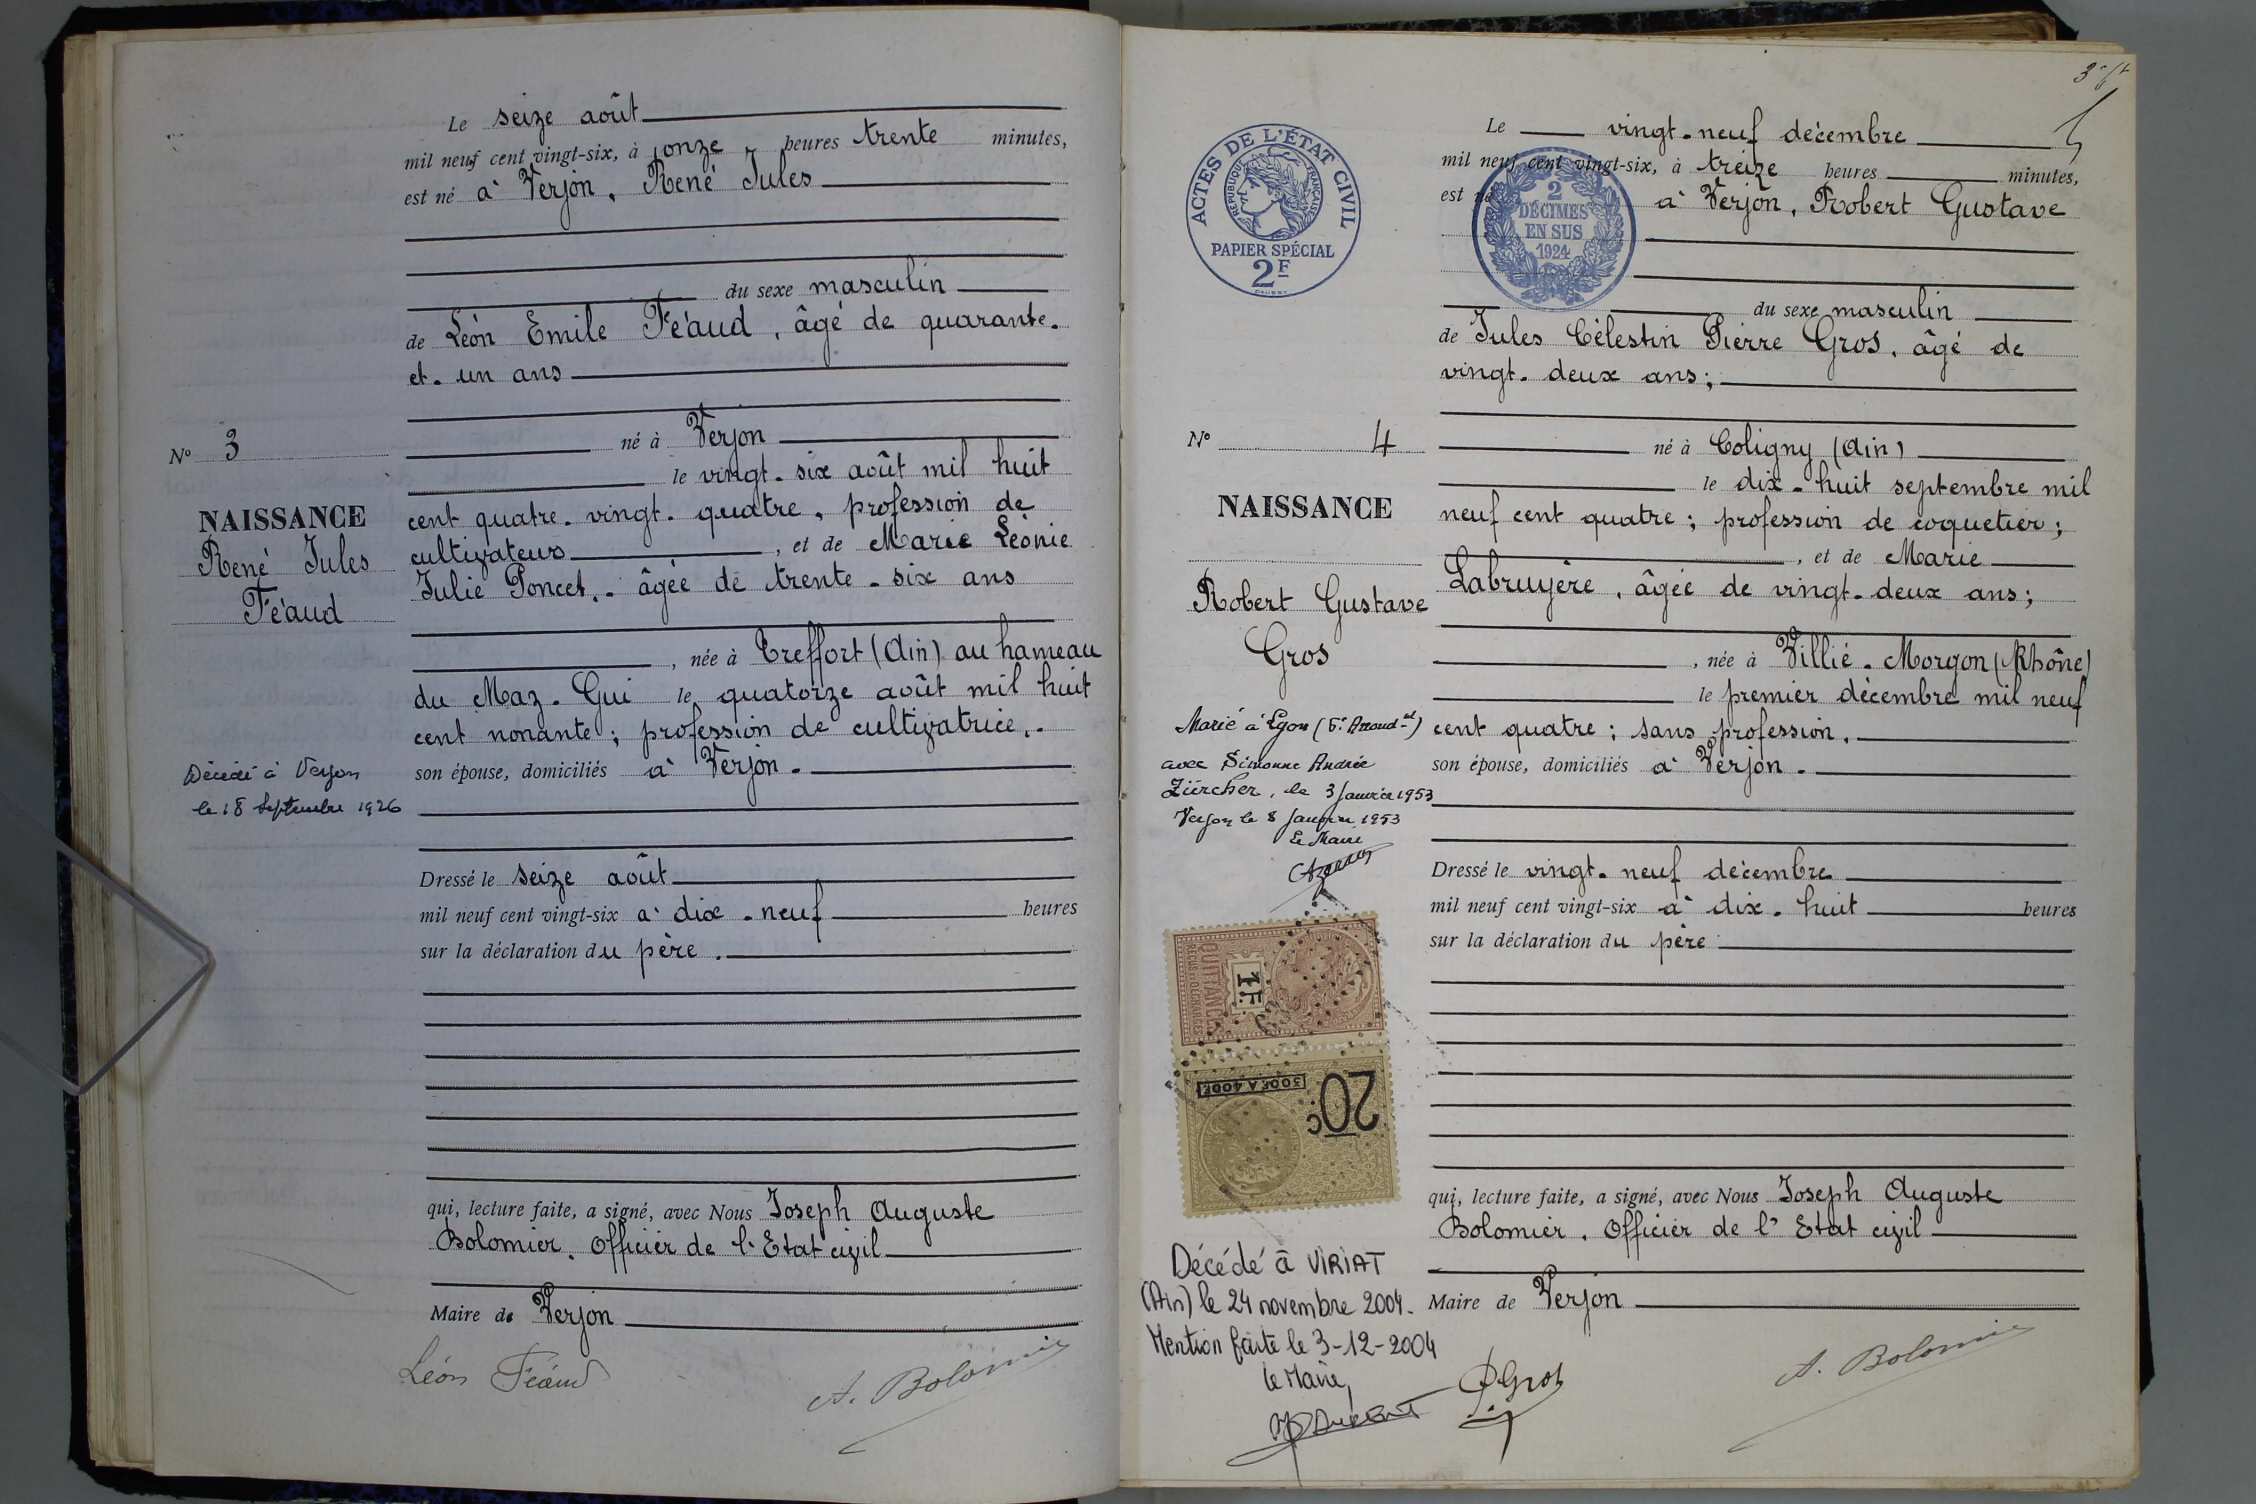 Le seize août
mil neuf cent vingt-six, à onze heures trente minutes,
est né à Verjon, René Jules
du sexe masculin
de Léon Emile Féaud, âgé de quarante-
et-un ans
né à Verjon
le vingt-six août mil huit
cent quatre-vingt-quatre, profession de
cultivateur, et de Marie Léonie
Julie Poncet, âgée de trente-six ans
, née à Treffort (Ain) au hameau
du Maz-Gui le quatorze août mil huit
cent nonante; profession de cultivatrice,
son épouse, domiciliés à Verjon.
Dressé le seize août
mil neuf cent vingt-six à dix-neuf heures
sur la déclaration du père.
qui, lecture faite, a signé, avec Nous Joseph Auguste
Bolomier, Officier de l'Etat civil
Maire de Verjon
Léon Féaud
A. Bolomier
N° 3
NAISSANCE
René Jules
Féaud
Décédé à Verjon
le 18 Septembre 1926
Le vingt-neuf décembre
mil neuf cent vingt-six, à treize heures minutes,
est né à Verjon, Robert Gustave
du sexe masculin
de Jules Célestin Pierre Gros, âgé de
vingt-deux ans;
né à Coligny (Ain)
le dix-huit septembre mil
neuf cent quatre; profession de coquetier;
, et de Marie
Labruyère, âgée de vingt-deux ans;
, née à Villié-Morgon (Rhône)
le premier décembre mil neuf
cent quatre; sans profession,
son épouse, domiciliés à Verjon.
Dressé le vingt-neuf décembre
mil neuf cent vingt-six à dix-huit heures
sur la déclaration du père
qui, lecture faite, a signé, avec Nous Joseph Auguste
Bolomier, Officier de l'Etat civil
Maire de Verjon
A. Bolomier
Gros
ACTES DE L'ÉTAT CIVIL
RÉPUBLIQUE FRANÇAISE
PAPIER SPÉCIAL
2F
2
DÉCIMES
EN SUS
1924
N° 4
NAISSANCE
Robert Gustave
Gros
Marié à Lyon (6e Arrond-nt)
avec Simonne Andrée
Zürcher, le 3 Janvier 1953
Verjon le 8 Janvier 1953
Le Maire
QUITTANCES
1F.
20c
300F À 400F
Décédé à VIRIAT
(Ain) le 24 novembre 2004.
Mention faite le 3-12-2004
le Maire,